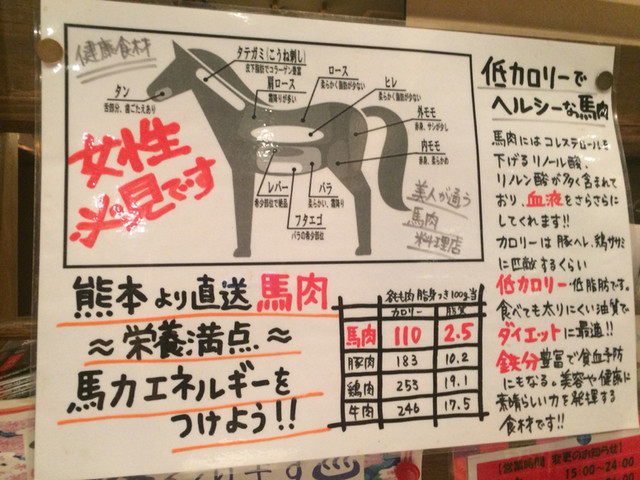 健康食材
タテガミ(こうね刺し)
皮下脂肪でコラーゲン豊富
タン
舌部分、歯ごたえあり
肩ロース
霜降りが多い
ロース
柔らかく脂肪が少ない
ヒレ
柔らかく脂肪が少ない
外モモ
赤身、サシが少し
内モモ
赤身、柔らかめ
レバー
希少部位で絶品
バラ
柔らかい、霜降り
フタエゴ
バラの希少部位
女性
必見です
美人が通う
馬肉
料理店
熊本より直送 馬肉
≈ 栄養満点 ≈
馬力エネルギーを
つけよう!!
もも肉 脂身つき100g当
カロリー 脂質
馬肉 110 2.5
豚肉 183 10.2
鶏肉 253 19.1
牛肉 246 17.5
低カロリーで
ヘルシーな馬肉
馬肉にはコレステロールを
下げるリノール酸、
リノレン酸が多く含まれて
おり、血液をさらさらに
してくれます!!
カロリーは豚ヘレ、鶏ササミ
に匹敵するくらい
低カロリー・低脂肪です。
食べても太りにくい油質で
ダイエットに最適!!
鉄分豊富で貧血予防
にもなる。美容や健康に
素晴らしい力を発揮する
食材です!!
【営業時間 変更のお知らせ】
15:00~24:00